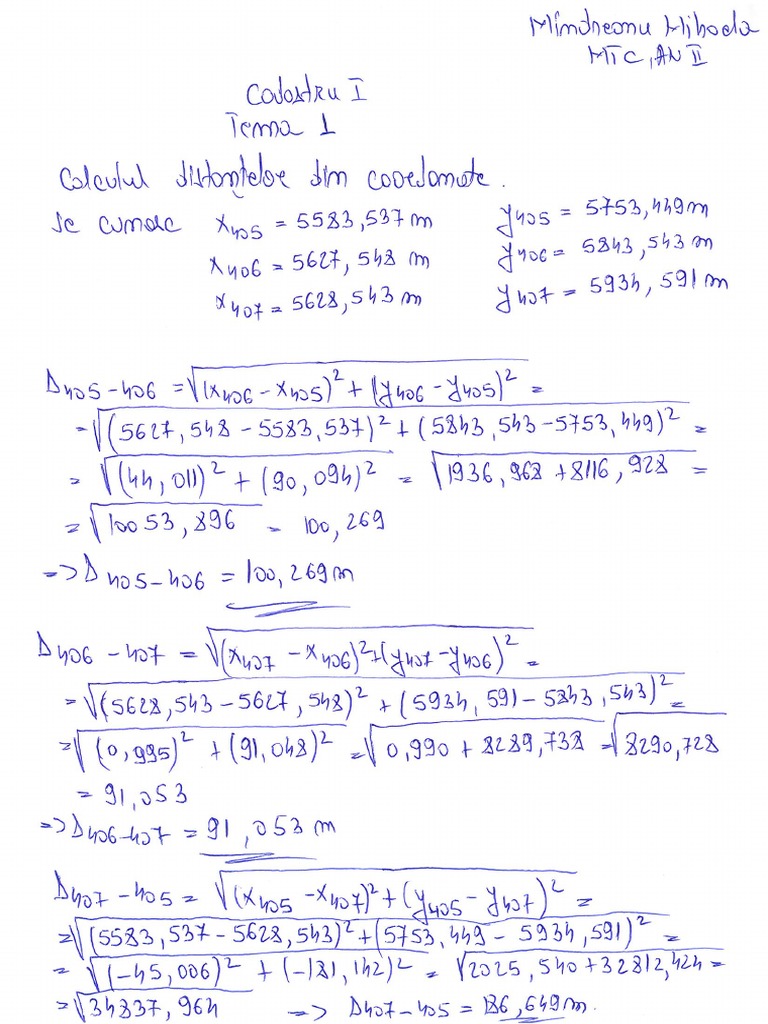 Mîndreanu Mihaela
MTC, AN II
Cadastru I
Tema 1
Calculul distanțelor din coordonate.
Se cunosc x405 = 5583,537 m y405 = 5753,449 m
x406 = 5627,548 m y406 = 5843,543 m
x407 = 5628,543 m y407 = 5934,591 m
D405-406 = √(x406 - x405)² + (y406 - y405)² =
= √(5627,548 - 5583,537)² + (5843,543 - 5753,449)² =
= √(44,011)² + (90,094)² = √1936,968 + 8116,928 =
= √10053,896 = 100,269
=> D405-406 = 100,269 m
D406-407 = √(x407 - x406)² + (y407 - y406)² =
= √(5628,543 - 5627,548)² + (5934,591 - 5843,543)² =
= √(0,995)² + (91,048)² = √0,990 + 8289,738 = √8290,728
= 91,053
=> D406-407 = 91,053 m
D407-405 = √(x405 - x407)² + (y405 - y407)² =
= √(5583,537 - 5628,543)² + (5753,449 - 5934,591)² =
= √(-45,006)² + (-181,142)² = √2025,540 + 32812,424 =
= √34837,964 => D407-405 = 186,649 m.